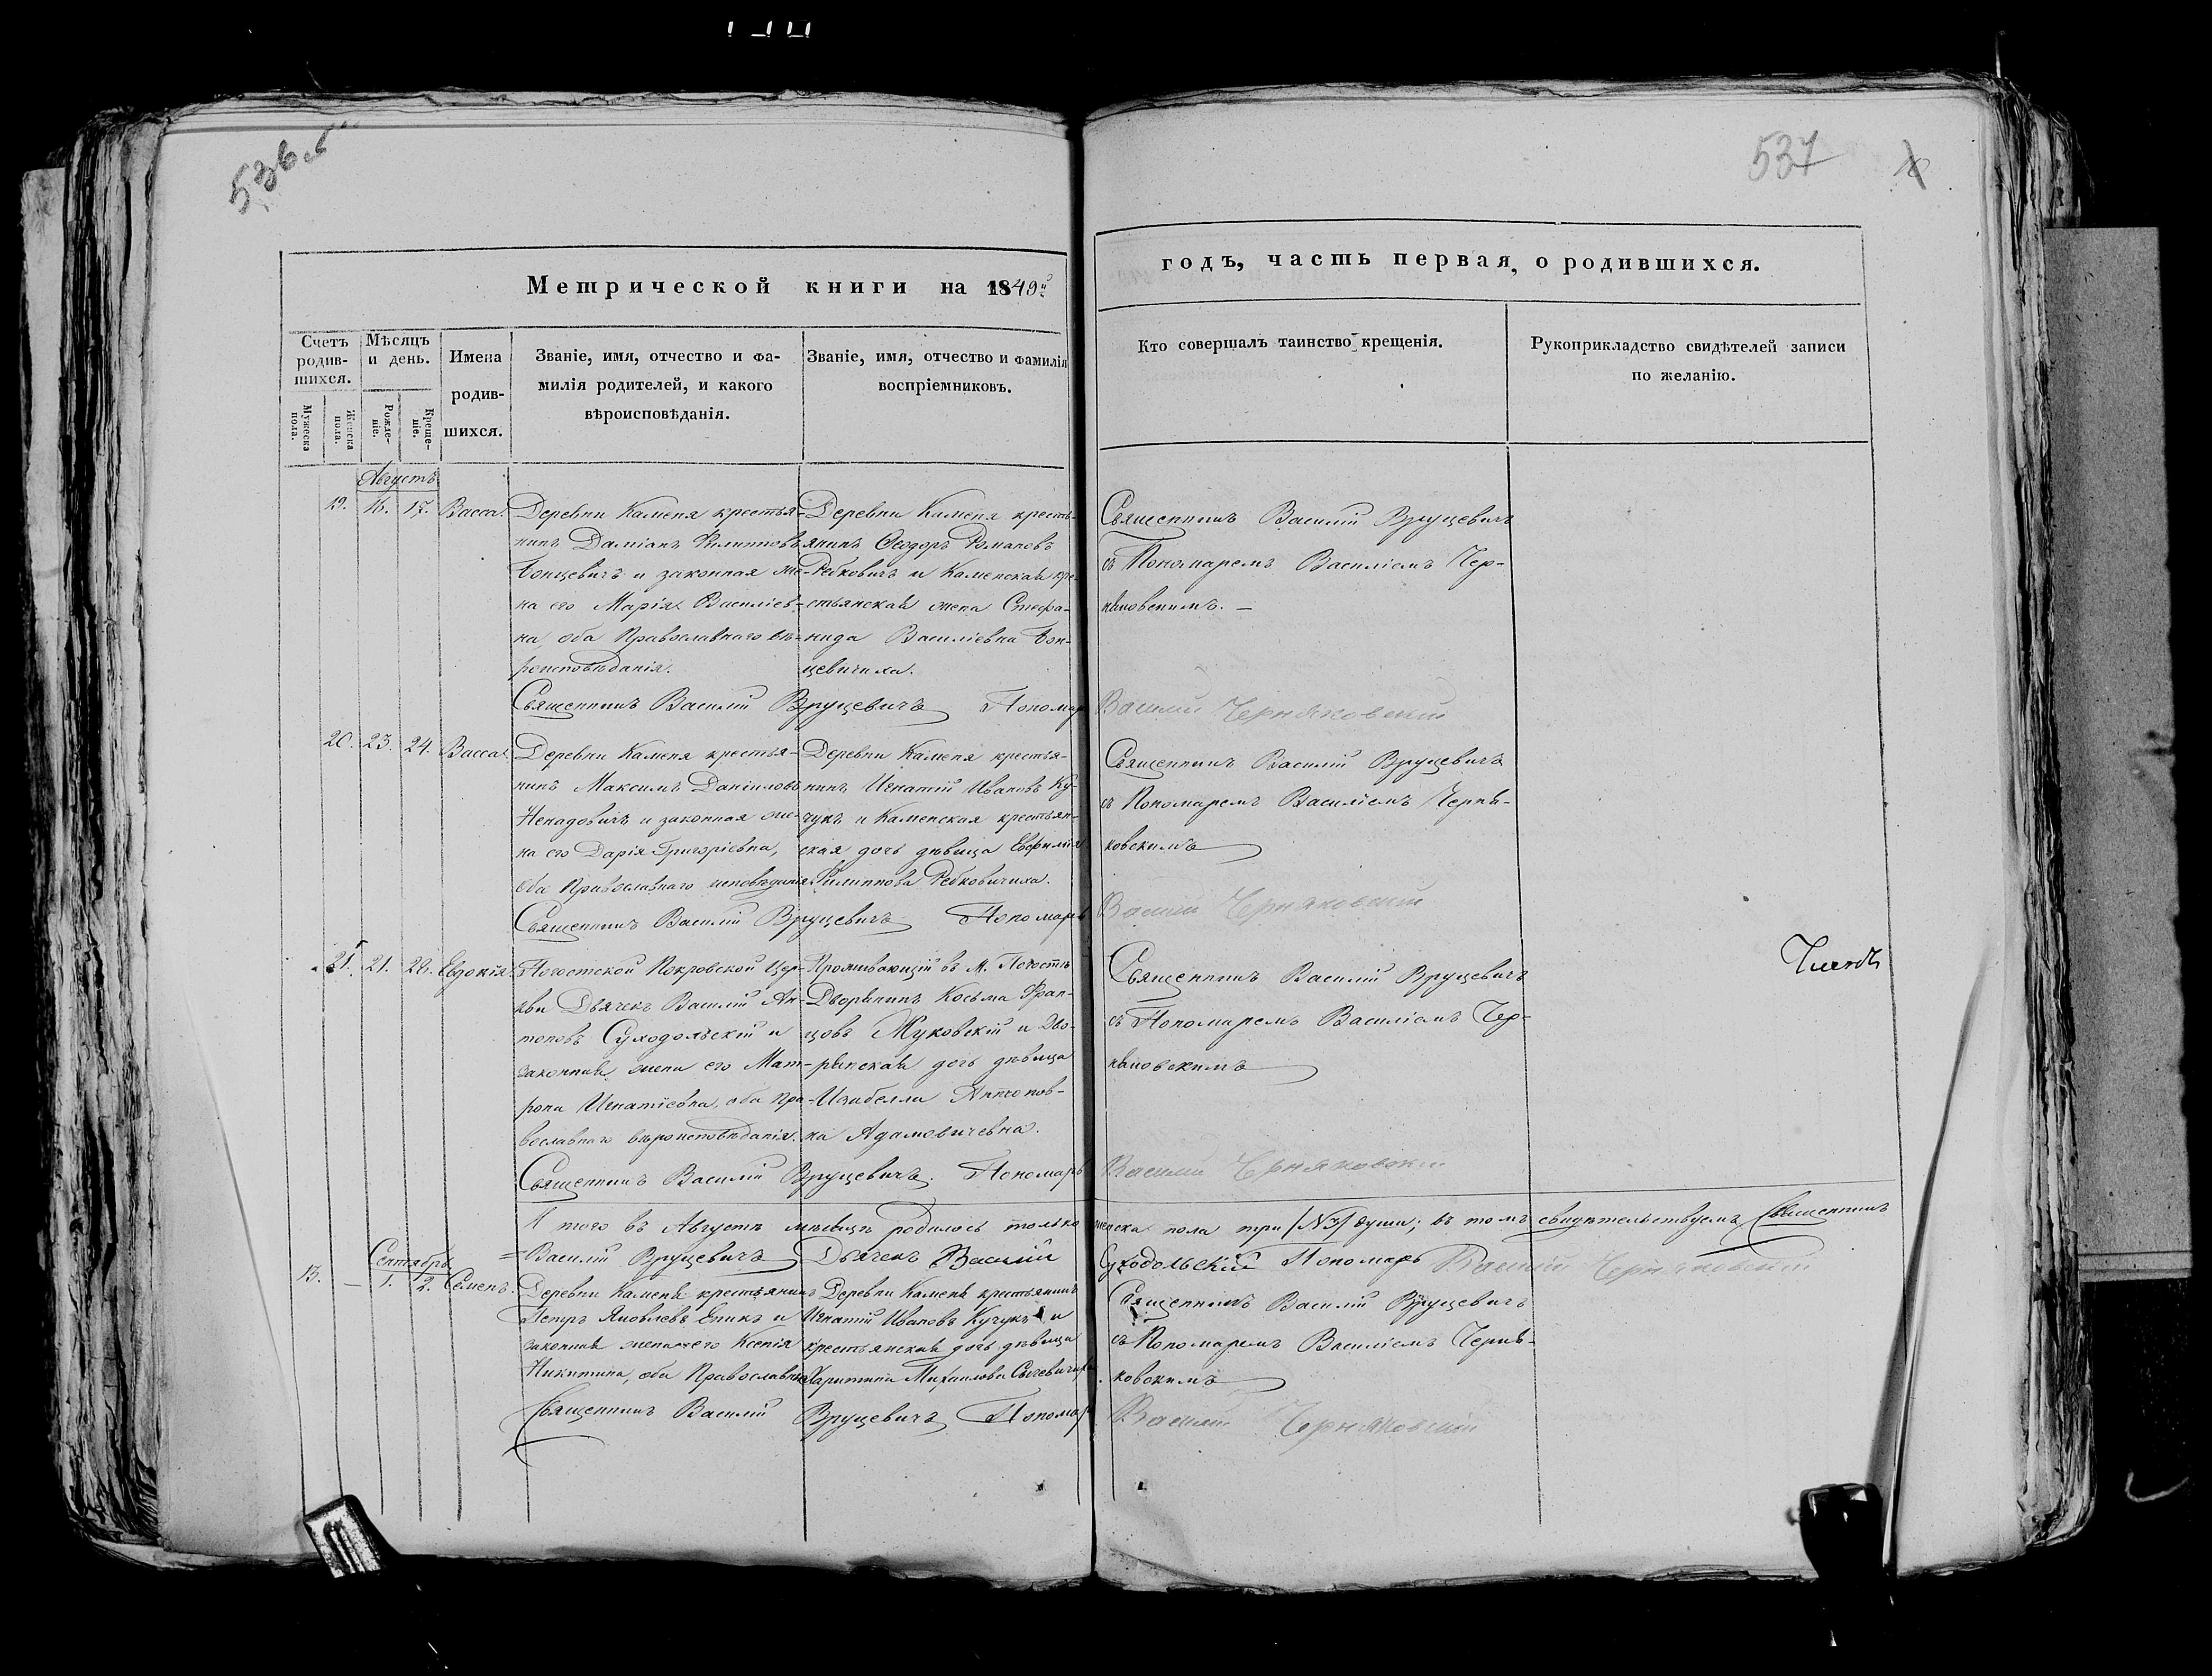 536 об
537
Метрической книги на 1849й
годъ, часть первая, о родившихся.
Счетъ родив-шихся.
Мужеска пола.
Женска пола.
Мѣсяцъ и день.
Рожде-ніе.
Креще-ніе.
Имена родив-шихся.
Званіе, имя, отчество и фа-
милія родителей, и какого
вѣроисповѣданія.
Званіе, имя, отчество и фамилія
воспріемниковъ.
Кто совершалъ таинство крещенія.
Рукоприкладство свидѣтелей записи
по желанію.
Августъ
19. 16. 17. Васса.
Деревни Каменя крестья-
нинъ Даміанъ Филиповъ
и законная же-
на его Марія Василіев-
на оба Православнаго вѣ-
роисповѣданія.
Деревни Каменя кресть-
янинъ Ѳеодоръ Романовъ
Ребковичъ и Каменская кре-
стьянская жена Стефа-
нида Василіевна Бон-
цевичиха.
Священникъ Василій Вруцевичъ
съ Пономаремъ Василіемъ Чер-
няковскимъ.
Священникъ Василій Вруцевичъ Пономарь Василій Черняковскій
20. 23. 24. Васса.
Деревни Каменя крестья-
нинъ Максимъ Даніиловъ
Ненадовичъ и законная же-
на его Дарія Григоріевна,
оба Православнаго исповѣданія.
Деревни Каменя крестья-
нинъ Игнатій Ивановъ Ку-
чукъ и Каменская крестьян-
ская дочь дѣвица Евфимія
Филиппова Ребковичиха.
Священникъ Василій Вруцевичъ
съ Пономаремъ Василіемъ Черня-
ковскимъ
Священникъ Василій Вруцевичъ Пономарь Василій Черняковскій
21. 21. 28. Евдокія.
Погостской Покровской Цер-
кви Дьячекъ Василій Ан-
тоновъ Суходольскій и
законная жена его Мат-
рона Игнатіевна, оба Пра-
вославнаго вѣроисповѣданія.
Проживающій въ М. Погостѣ
Дворянинъ Косьма Фран-
цовъ Жуковскій и Дво-
рянская дочь дѣвица
Изабелла Антонов-
на Адамовичевна.
Священникъ Василій Вруцевичъ
съ Пономаремъ Василіемъ Чер-
няковскимъ
Священникъ Василій Вруцевичъ. Пономарь Василій Черняковскій
И того въ Августѣ мѣсяцѣ родилось только женска пола три /№3/ души; въ томъ свидѣтельствуемъ Священникъ
Василій Вруцевичъ Дьячекъ Василій Суходольскій Пономарь Василій Черняковскій
Сентябрь
13. — 1. 2. Семенъ.
Деревни Каменя крестьянинъ
Петръ Яковлевъ Епикъ и
законная жена его Ксенія
Никитина, оба Православные
Деревни Каменя крестьянинъ
Игнатій Ивановъ Кучукъ и
крестьянская дочь дѣвица
Харитина Михаилова
Священникъ Василій Вруцевичъ
съ Пономаремъ Василіемъ Черня-
ковскимъ
Священникъ Василій Вруцевичъ Пономарь Василій Черняковскій